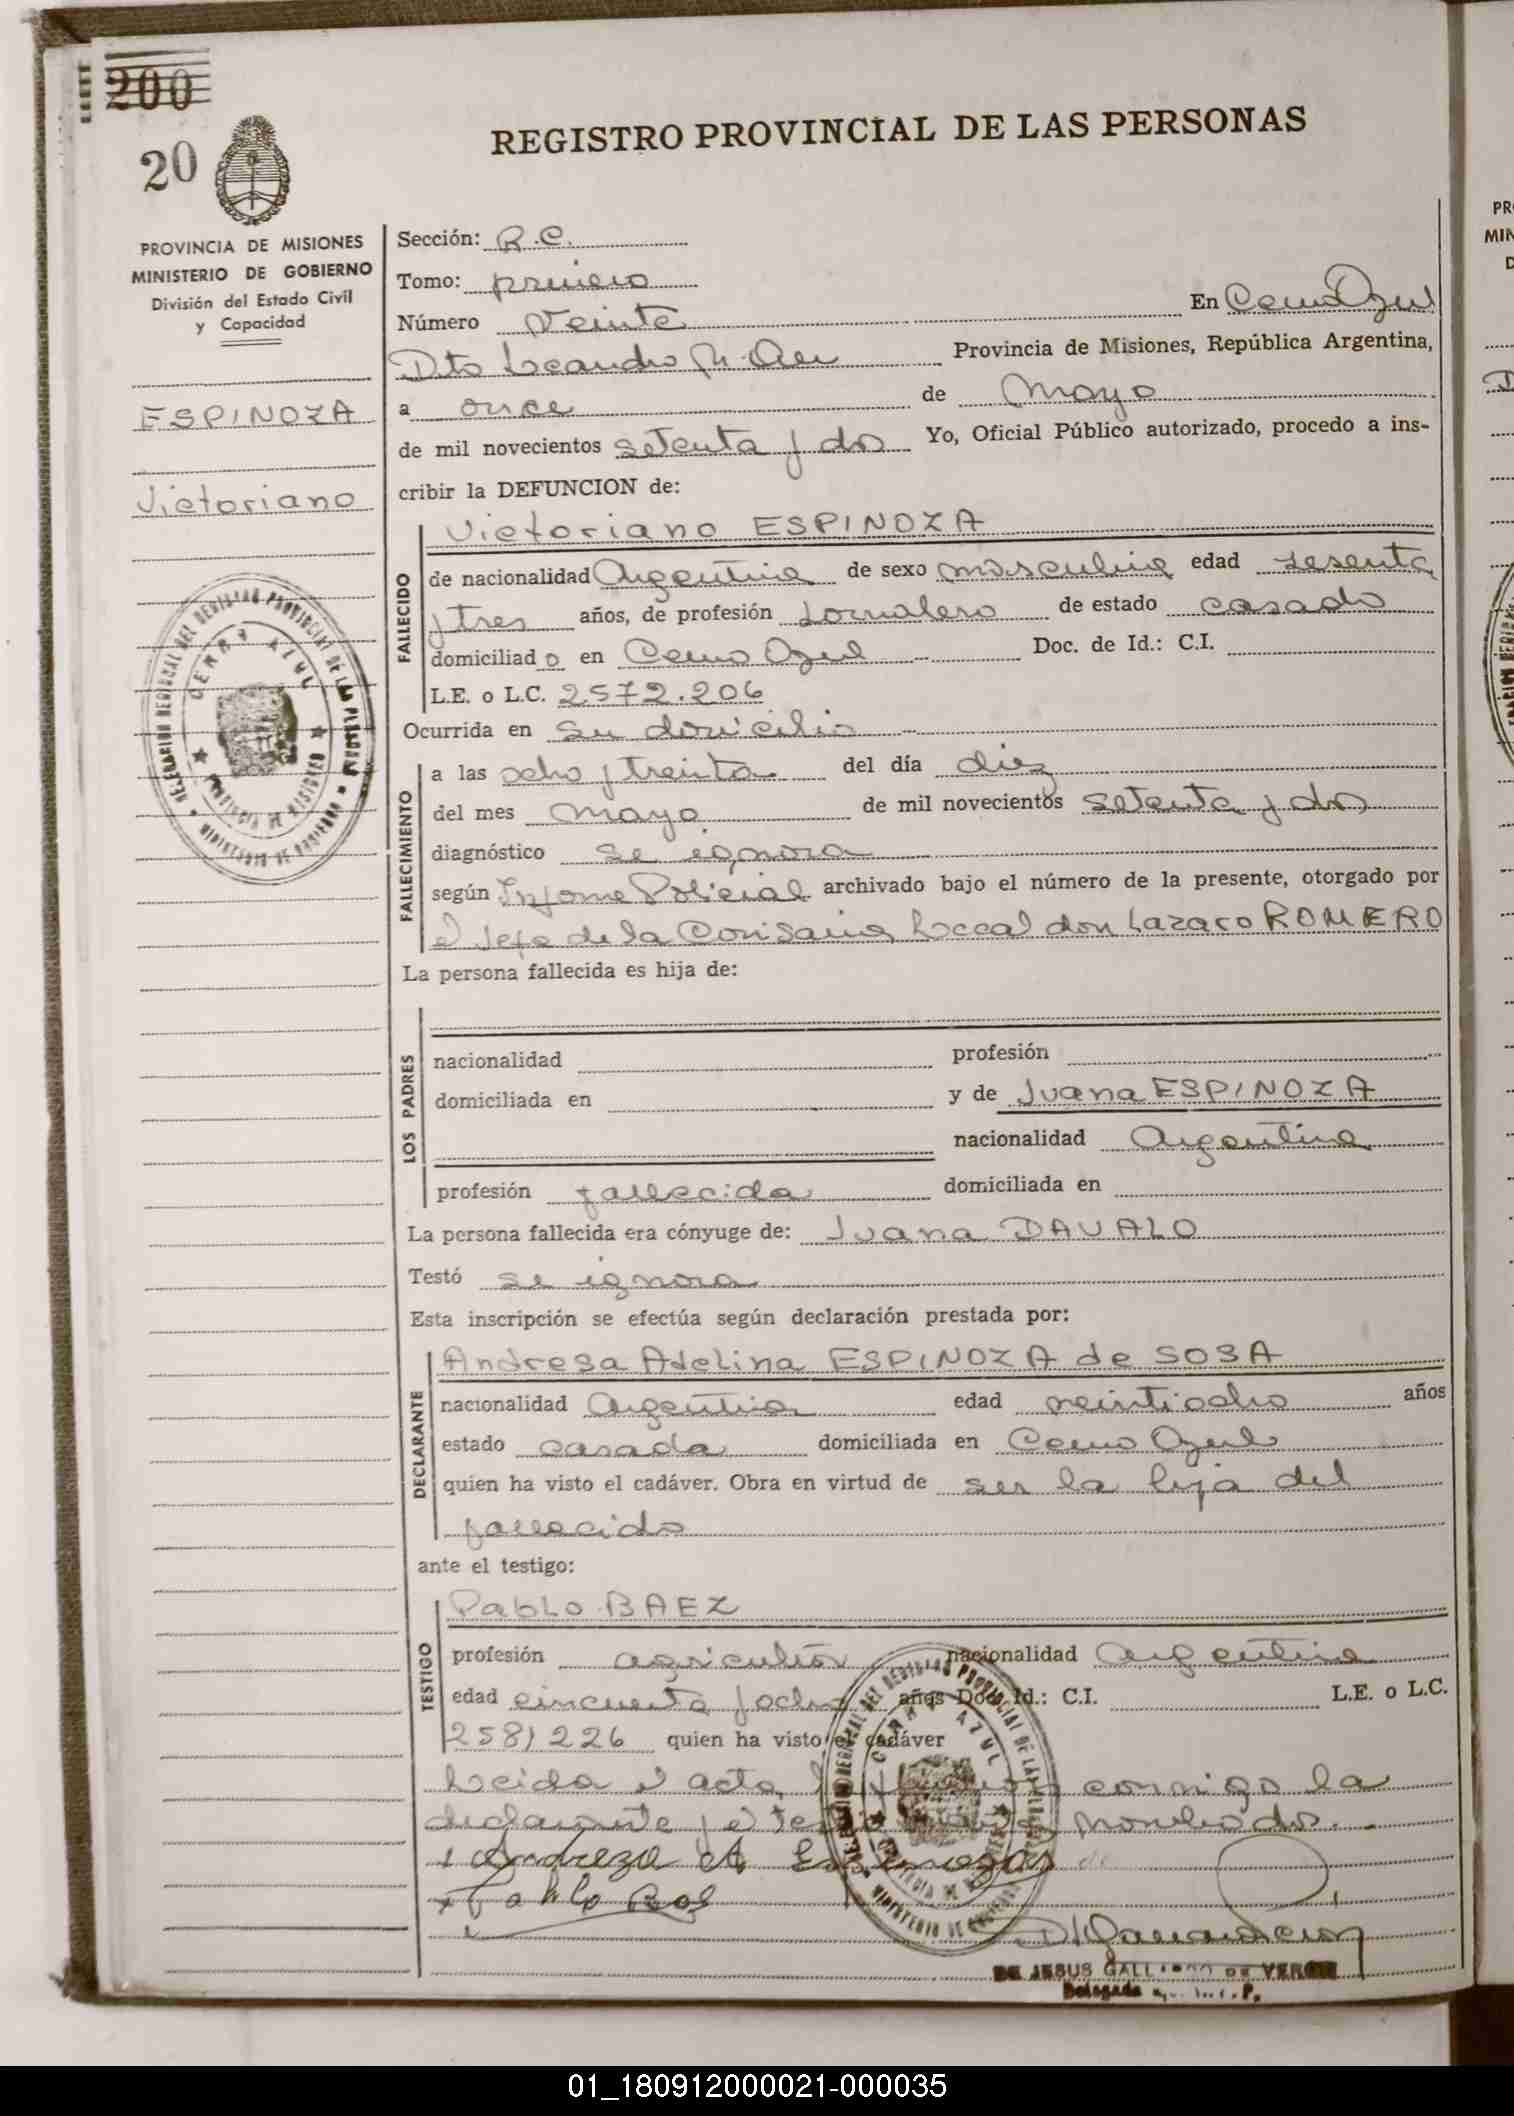 200
20
REGISTRO PROVINCIAL DE LAS PERSONAS
PROVINCIA DE MISIONES
MINISTERIO DE GOBIERNO
División del Estado Civil
y Capacidad
ESPINOZA
Victoriano
Sección: R.C.
Tomo: primero
Número Veinte En Cerro Azul
Dto Leandro N. Alem Provincia de Misiones, República Argentina,
a once de Mayo
de mil novecientos setenta y dos Yo, Oficial Público autorizado, procedo a ins-
cribir la DEFUNCION de:
FALLECIDO
Victoriano ESPINOZA
de nacionalidad Argentina de sexo masculino edad sesenta
y tres años, de profesión Jornalero de estado casado
domiciliado en Cerro Azul Doc. de Id.: C.I.
L.E. o L.C. 2572.206
Ocurrida en su domicilio
FALLECIMIENTO
a las ocho y treinta del día diez
del mes mayo de mil novecientos setenta y dos
diagnóstico se ignora
según Informe Policial archivado bajo el número de la presente, otorgado por
el Jefe de la Comisaria Local don Lazaro ROMERO
La persona fallecida es hija de:
LOS PADRES
nacionalidad profesión
domiciliada en y de Juana ESPINOZA
nacionalidad Argentina
profesión fallecida domiciliada en
La persona fallecida era cónyuge de: Juana DAVALO
Testó se ignora
Esta inscripción se efectúa según declaración prestada por:
DECLARANTE
Andresa Adelina ESPINOZA de SOSA
nacionalidad Argentina edad veintiocho años
estado casada domiciliada en Cerro Azul
quien ha visto el cadáver. Obra en virtud de ser la hija del
fallecido
ante el testigo:
TESTIGO
Pablo BAEZ
profesión agricultor nacionalidad Argentina
edad cincuenta y ocho años Doc. Id.: C.I. L.E. o L.C.
2581226 quien ha visto el cadáver
Leida el acta, conmigo la
declarante y el nombrados.
Pablo
DE JESUS DE
Delegada
01_180912000021-000035